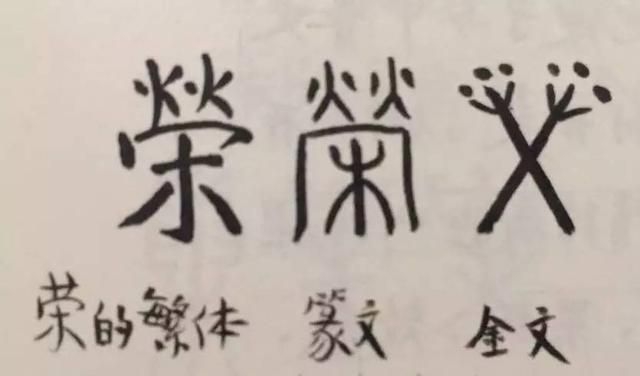 榮 榮
荣的繁体 篆文 金文